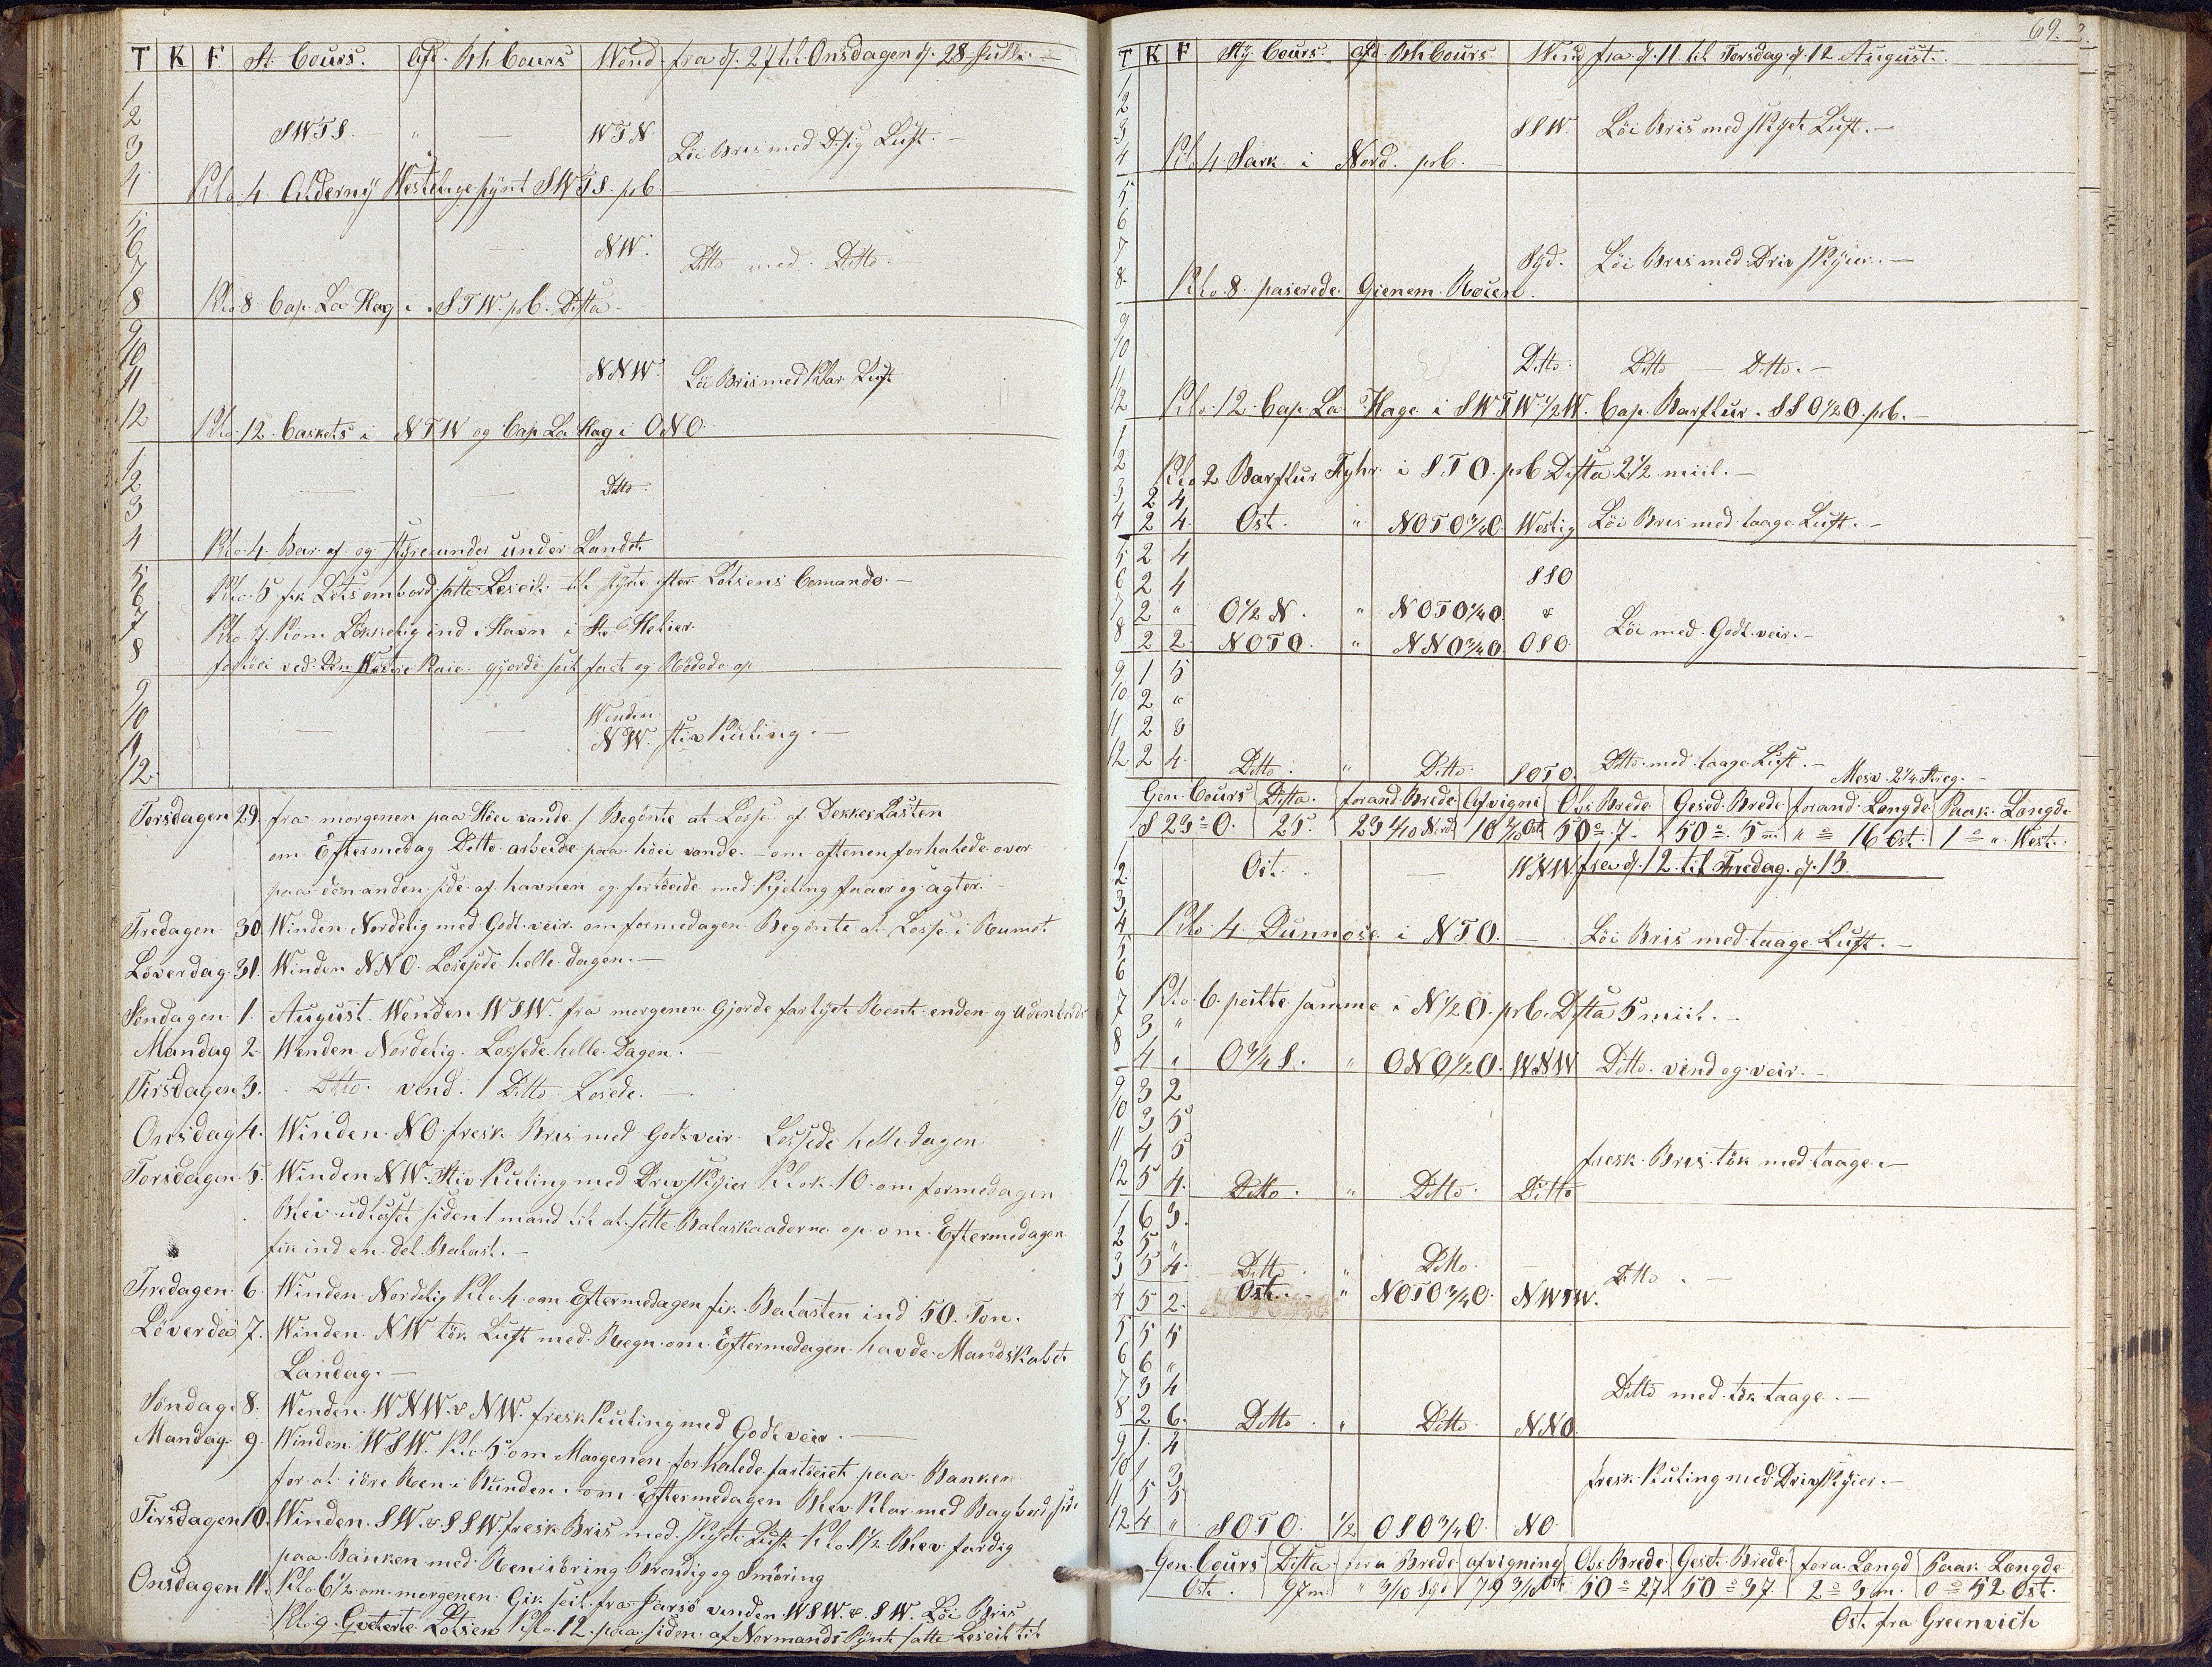 T K F St. Cours. Afd. Bh Cours Wend. fra d. 27 til Onsdagen d. 28 Julli.
1
2
SWTS. " — WTN.
3
Löi Bris med Disig Luft.
4 Klo 4. Alderny Westelige pynt SWTS. pb.
5
6 — NW.
7 Ditto med Ditto.
8 Klo 8 Cap. La Hag i STW. pb. Dista
9
10
11 NNW. Löi Bris med Klar Luft
12 Klo 12. Caskets i NTW og Cap La Hag i ONO.
1
2 — — Ditto.
3
4 Klo. 4. Bar af og styre under under Landet
5 Klo. 5. fik Lots om bord satte Leseil til styrte efter Lotsens Comando.
6
7 Klo. 7. Kom Lökkelig ind i Havn i St. Helier.
8 fortöiei ved Den Westre Kaie. gjorde seil fast og Rödede op
9
10 Wenden
11 — — NW. stiv Kuling.
12.
Torsdagen 29. fra morgenen paa Höiervande / Begönte at Losse af Dekkes Lasten
om Eftermedag Ditto arbeide paa höiervande. — om aftenen forhalede over
paa den anden side af havnen og fortöeide med Kjeting foran og agter.
Fredagen 30. Winden Nordelig med Godt veir. om formedagen Begönte at Losse i Rumet
Löverdag 31. Winden NNO. Lossede helle dagen.
Söndagen 1. August. Wenden WSW. fra morgenen Gjorde fartyet Rent enden og Udenbords
Mandag 2. Wenden Nordelig. Lossede helle Dagen.
Tirsdagen 3. Ditto. vend. / Ditto Losede.
Onsdag 4. Winden NO. fresk Bris med Godt veir. Lossede helle dagen
Torsdagen 5. Winden NW. Stiv Kuling med Drivskyier Klok. 10. om formedagen
Blev udlosset siden 1 mand til at sette Balaskaaderne op om Eftermedagen
fik ind en del Balast.
Fredagen 6. Winden Nordelig Klo. 4. om Eftermedagen fik Balasten ind 50. Ton.
Löverda 7. Winden NW tök Luft med Regn om Eftermedagen havde Mandskabet
Landag.
Söndag 8. Wenden WNW. & NW. fresk Kuling med Godt veir.
Mandag. 9. Winden WSW. Klo. 5. om Morgenen forhalede fartöiet paa Banken
for at iöre Reen i Bunden. om Eftermedagen Blev Klar med Bagbord side
Tirsdagen 10. Winden SW. & SSW. fresk Bris med skyet Luft Klo. 1½ Blev fardig
paa Banken med Reniöring Brending og Smöring
Onsdagen 11. Klo. 6½ om morgenen Gik seil fra Jarsö venden WSW. & SW. Löi Bris
Klo. 9. Qviterte Lotsen Klo. 12. paa siden af Normands Pynt satte Leseil til
69.
T K F Sty Cours. Afd. Bh Cours Wind fra d. 11 til Torsdag d. 12 August.
1
2
3 SSW. Löi Bris med skyet Luft.
4 Klo 4. Sark i Nord. pb.
5
6
7 Syd. Löi Bris med Driv skyier.
8. Klo. 8. paserede Gienem Rosen.
9
10
11 Ditto. Ditto — Ditto.
12 Klo. 12. Cap. La Hage i SWTW ½ W. Cap. Barflur. SSO ½ O. pb.
1
2 Klo 2 Barflur Fyhr i STO. pb Dista 2½ miil.
3 2 4
4 2 4. Ost. " NOTO ¾ O. Westig Löi Bris med taage Luft.
5 2 4
6 2 4 SSO
7 2 " O ½ N. " NOTO ¼ O. &
8 2 2. NOTO. " NNO ¾ O OSO. Löi med Godt veir.
9 1 5
10 2 "
11 2 3
12 2 4. Ditto. " Ditto. SOTO. Ditto med taage Luft.
Mesv. 2¼ Streg.
Gen. Cours Dista. forand. Brede Afvigni Obs. Brede Gesed. Brede forand. Longde Paak. Longde
S 23° O. 25. 23 1/10 Nord 10 2/10 Ost 50° 7. 50° 5 m. " ° 16 Ost. 1° " West.
1
2 Ost. — WNW. fra d. 12. til Fredag. d. 13.
3
4 Klo 4 Dunnose i NTO. — Löi Bris med taage Luft.
5
6 Klo. 6. peilte samme i N ½ O. pb. Dista 5 miil.
7 3 "
8 4 " O ¾ S. " ONO ½ O. WNW Ditto. vind og veir.
9 3 2
10 3 5
11 4 5
12 5 4. Ditto. " Ditto. Ditto fresk Bris tök med taage.
1 6 3.
2 5 "
3 5 4. Ditto. " Ditto. — Ditto.
4 5 2. Ost. " NOTO ¾ O. NWTW.
5 5 5
6 6 "
7 3 4 Ditto med tök taage.
8 2 6. Ditto. " Ditto. NNO.
9 1. 4
10 1 3 fresk Kuling med Drivskyier.
11 5 5
12 4 " SOTO. ½ OSO ¾ O. NO.
Gen. Cours Dista. fora Brede afvigning Obs. Brede Geset. Brede fora. Longd Paak. Longde
Ost. 97 m. " 3/10 Syd 79 3/10 Ost. 50° 27. 50° 37 2° 3 m. 0° 52 Ost.
Ost fra Greenvich